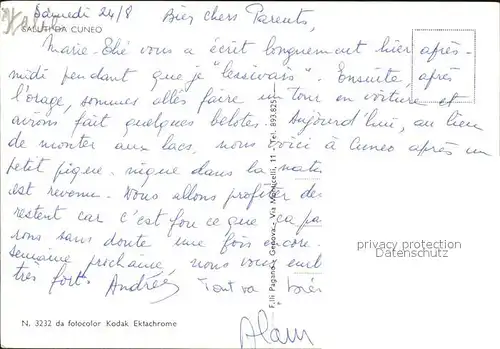 Samedi 24/8 Bien chers Parents,
SALUTI DA CUNEO
Marie-Thé vous a écrit longuement hier après-
midi pendant que je "lessivais". Ensuite, après
l'orage, sommes allés faire un tour en voiture et
avons fait quelques belotes. Aujourd'hui, au lieu
de monter aux lacs, nous voici à Cuneo après un
petit pique-nique dans la natu
est revenu. Nous allons profiter de
restent car c'est fou ce que ça pa
rons sans doute une fois encore.
semaine prochaine, nous vous emb
très fort. Andrée Tout va très
Alain
N. 3232 da fotocolor Kodak Ektachrome
F.lli Pagano - Genova - Via Monticelli, 11 - Tel. 893.825
privacy protection
Datenschutz